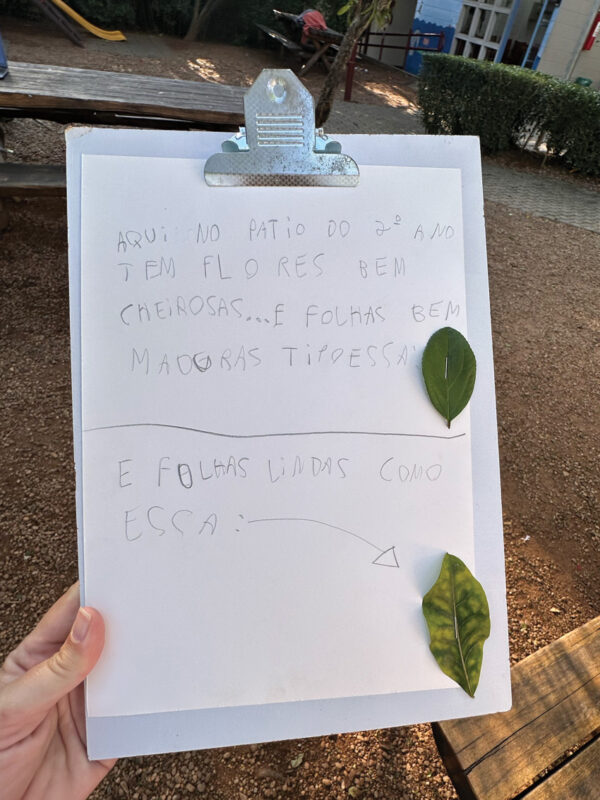 AQUI NO PATIO DO 2º ANO
TEM FLORES BEM
CHEIROSAS...E FOLHAS BEM
MADURAS TIPO ESSA:
E FOLHAS LINDAS COMO
ESSA: